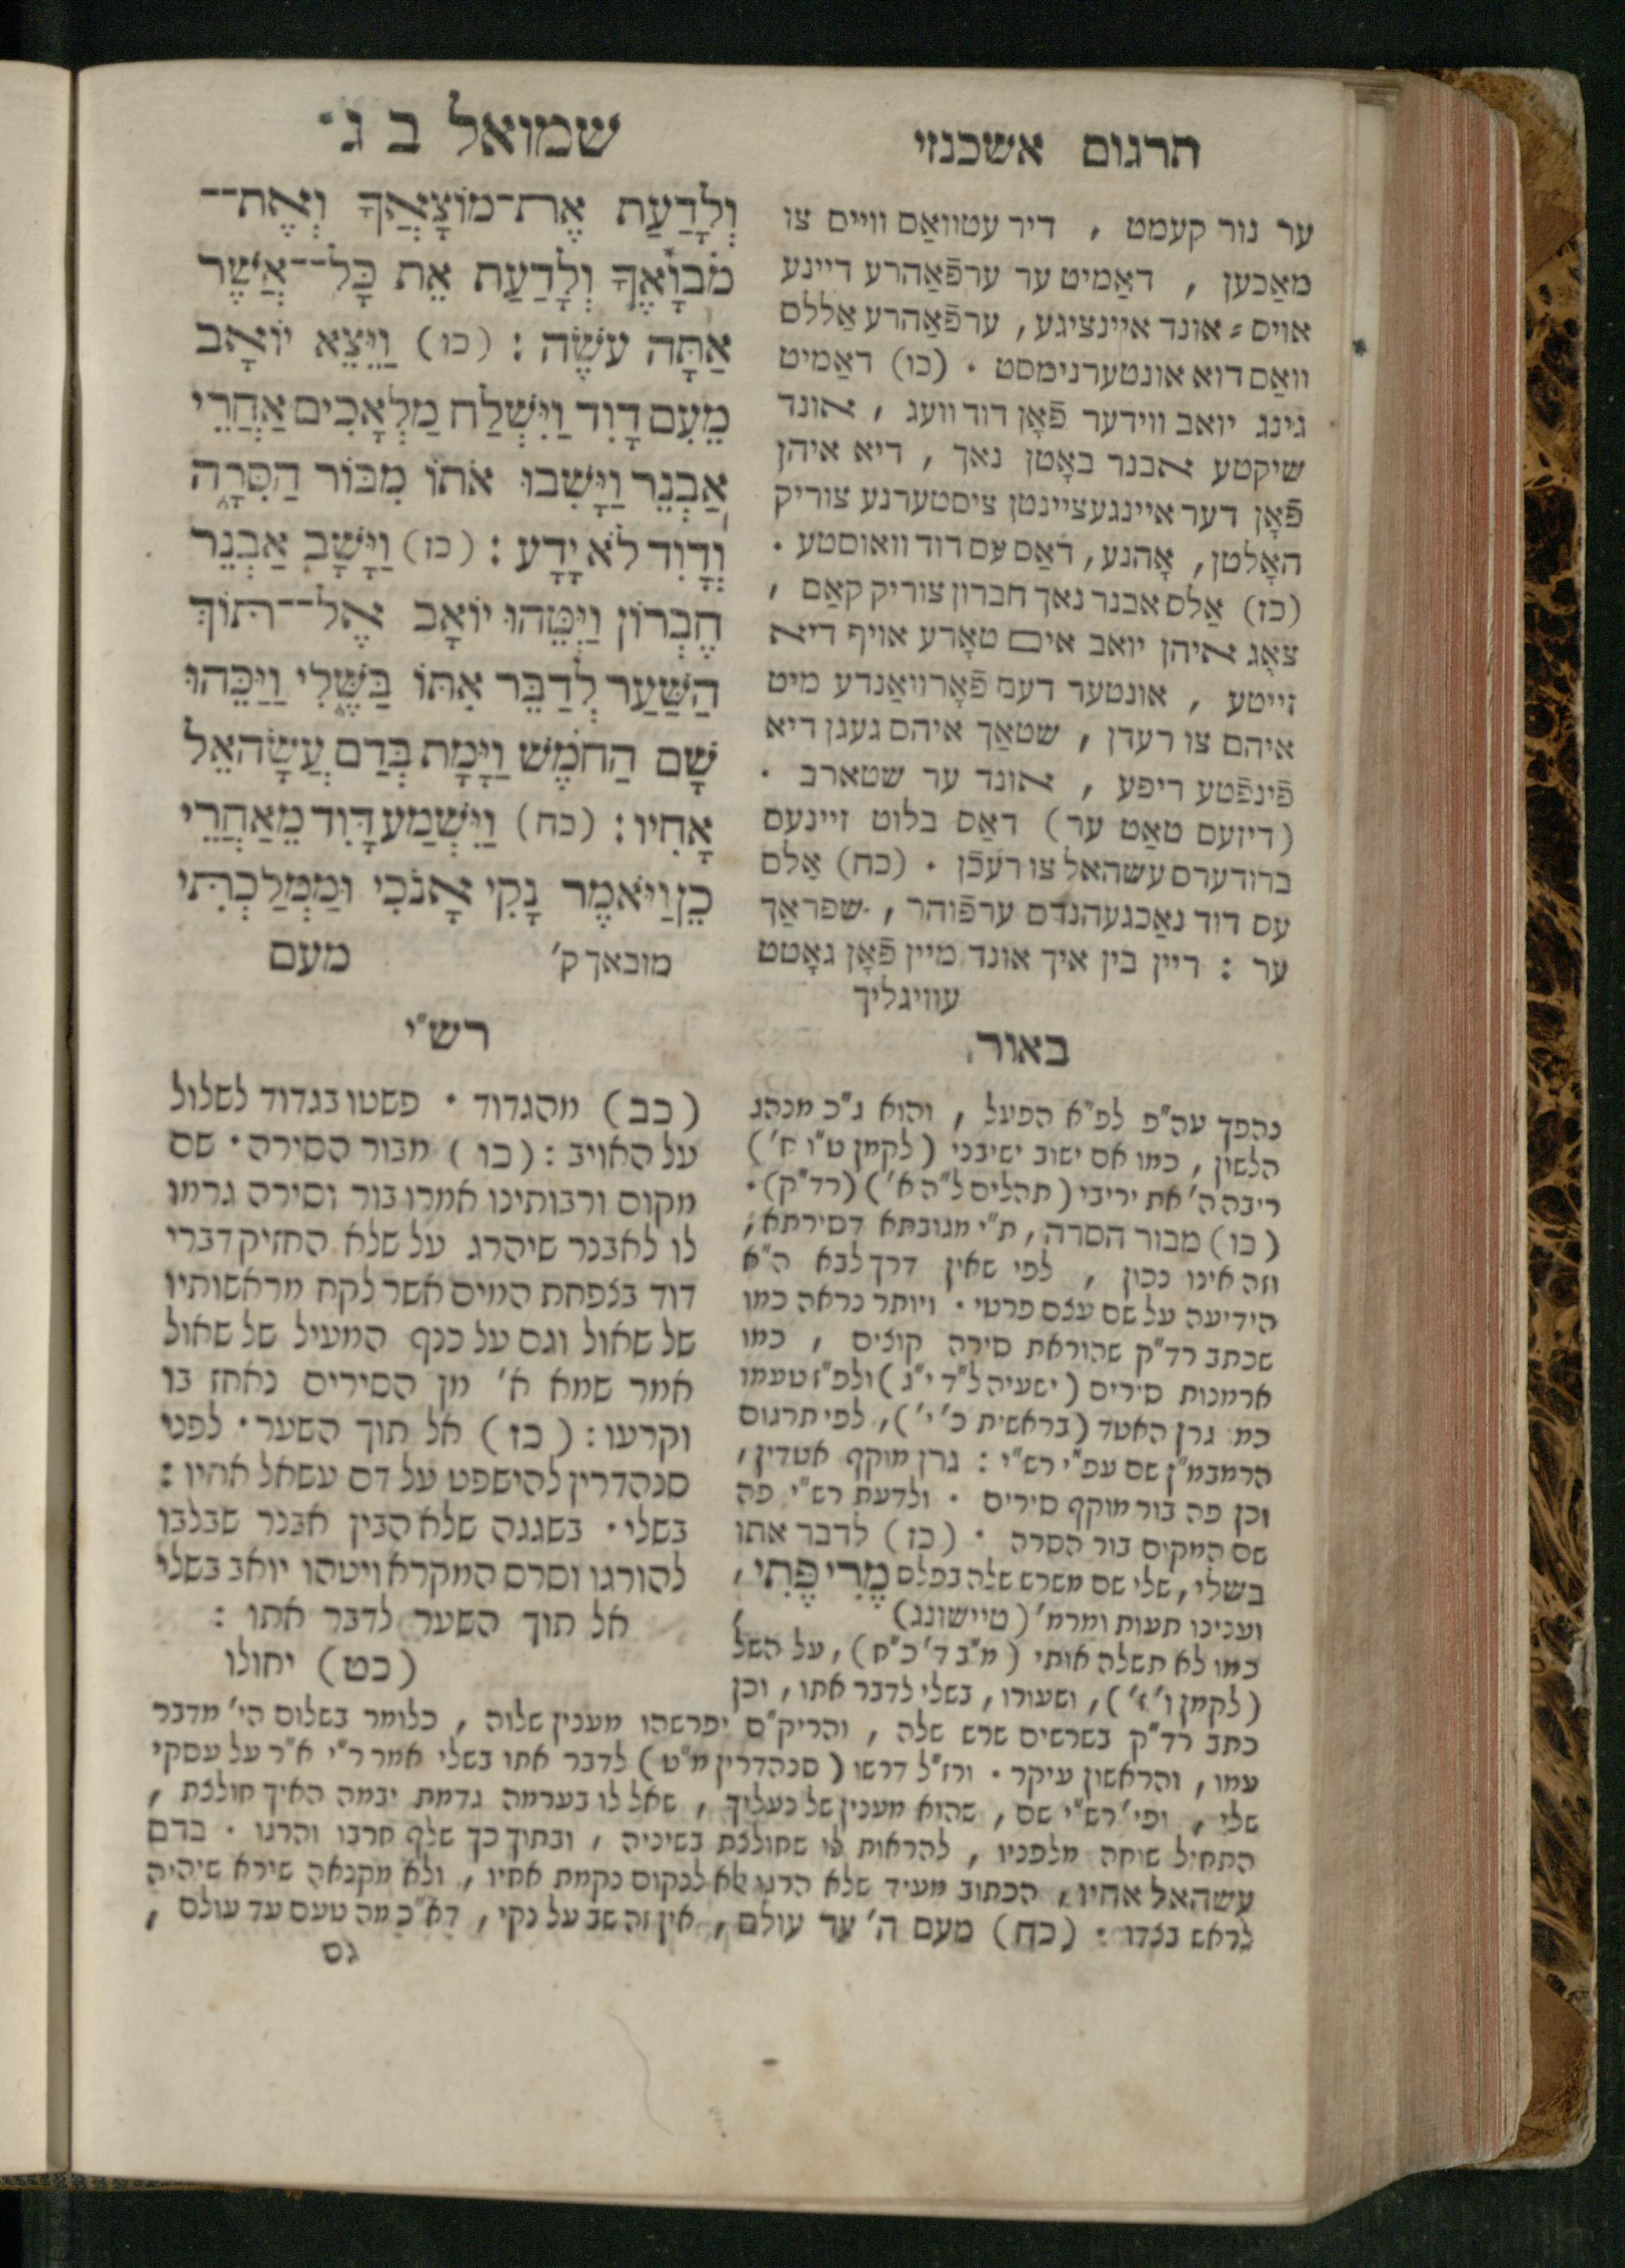 תרגום אשכנזי
ער נור קעמט , דיר עטוואַס ווייס צו
מאַכען , דאַמיט ער ערפֿאַהרע דיינע
אויס = אונד איינציגע , ערפֿאַהרע אַללס
וואַס דוא אונטערנימסט . (כו) דאַמיט
גינג יואב ווידער פֿאָן דוד וועג , אונד
שיקטע אבנר באָטן נאך , דיא איהן
פֿאָן דער איינגעציינטן ציסטערנע צוריק
האָלטן , אָהנע , דאַס עס דוד וואוסטע .
(כז) אַלס אבנר נאך חברון צוריק קאַם ,
צאָג איהן יואב אים טאָרע אויף דיא
זייטע , אונטער דעם פֿאָרוואַנדע מיט
איהם צו רעדן , שטאַך איהם געגן דיא
פֿינפֿטע ריפע , אונד ער שטארב .
(דיזעס טאַט ער) דאַס בלוט זיינעס
ברודערס עשהאל צו רעכֿן . (כח) אָלס
עס דוד נאַכגעהנדס ערפֿוהר , שפראַך
ער : ריין בין איך אונד מיין פֿאָן גאָטט
עוויגליך
שמואל ב ג
וְלָדַעַת אֶת־מוֹצָאֲךָ וְאֶת־
מֹבוָֹאֶךָ וְלָדַעַת אֵת כָּל־אֲשֶׁר
אַתָּה עֹשֶׂה : (כו) וַיֵּצֵא יוֹאָב
מֵעִם דָּוִד וַיִּשְׁלַח מַלְאָכִים אַחֲרֵי
אַבְנֵר וַיָּשִׁבוּ אֹתוֹ מִבּוֹר הַסִּרָה
וְדָוִד לֹא יָדָע : (כז) וַיָּשָׁב אַבְנֵר
חֶבְרוֹן וַיַּטֵּהוּ יוֹאָב אֶל־תּוֹךְ
הַשַּׁעַר לְדַבֵּר אִתּוֹ בַּשֶּׁלִי וַיַּכֵּהוּ
שָׁם הַחֹמֶשׁ וַיָּמָת בְּדַם עֲשָׂהאֵל
אָחִיו : (כח) וַיִּשְׁמַע דָּוִד מֵאַחֲרֵי
כֵן וַיֹּאמֶר נָקִי אָנֹכִי וּמַמְלַכְתִּי
מובאך ק' מעם
באור
נהפך עה"פ לפ"א הפעל , והוא ג"כ מנהג
הלשון , כמו אם ישוב ישיבני (לקמן ט"ו ח')
ריבה ה' את יריבי (תהלים ל"ה א') (רד"ק) .
(כו) מבור הסרה , ת"י מגובתא דסירתא ,
וזה אינו נכון , לפי שאין דרך לבא ה"א
הידיעה על שם עצם פרטי . ויותר נראה כמו
שכתב רד"ק שהוראת סירה קוצים , כמו
ארמנות סירים (ישעיה ל"ד י"ג) ולפ"ז טעמו
כמו גרן האטד (בראשית כ' י') , לפי תרגום
הרמבמ"ן שם עפ"י רש"י : גרן מוקף אטדין ,
וכן פה בור מוקף סירים . ולדעת רש"י פה
שם המקום בור הסרה . (כז) לדבר אתו
בשלי , שלי שם משרש שלה בפלס מֶרִי פֶּתִי ,
וענינו תעות ומרמ' (טיישונג)
כמו לא תשלה אותי (מ"ב ד' כ"ח) , על השל
(לקמן ו' ז') , ושעורו , בשלי לדבר אתו , וכן
כתב רד"ק בשרשים שרש שלה , והריק"ם יפרשהו מענין שלוה , כלומר בשלום הי' מדבר
עמו , והראשון עיקר . ורז"ל דרשו (סנהדרין מ"ט) לדבר אתו בשלי אמר ר"י א"ר על עסקי
שלי , ופי' רש"י שם , שהוא מענין של נעליך , שאל לו בערמה גדמת יבמה האיך חולצת ,
התחיל שוחה מלפניו , להראות לו שחולצת בשיניה , ובתוך כך שלף חרבו והרגו . בדם
עשהאל אחיו , הכתוב מעיד שלא הרגו אלא לנקום נקמת אחיו , ולא מקנאה שירא שיהיה
לראש בצדו : (כח) מעם ה' עד עולם , אין זה שב על נקי , דא"כ מה טעם עד עולם ,
גם
רש"י
(כב) מהגדוד . פשטו בגדוד לשלול
על האויב : (כו) מבור הסירה . שם
מקום ורבותינו אמרו בור וסירה גרמו
לו לאבנר שיהרג על שלא החזיק דברי
דוד בצפחת המים אשר לקח מראשותיו
של שאול וגם על כנף המעיל של שאול
אמר שמא א' מן הסירים נאחז בו
וקרעו : (כז) אל תוך השער . לפני
סנהדרין להישפט על דם עשאל אחיו :
בשלי . בשגגה שלא הבין אבנר שבלבו
להורגו וסרס המקרא ויטהו יואב בשלי
אל תוך השער לדבר אתו :
(כט) יחולו